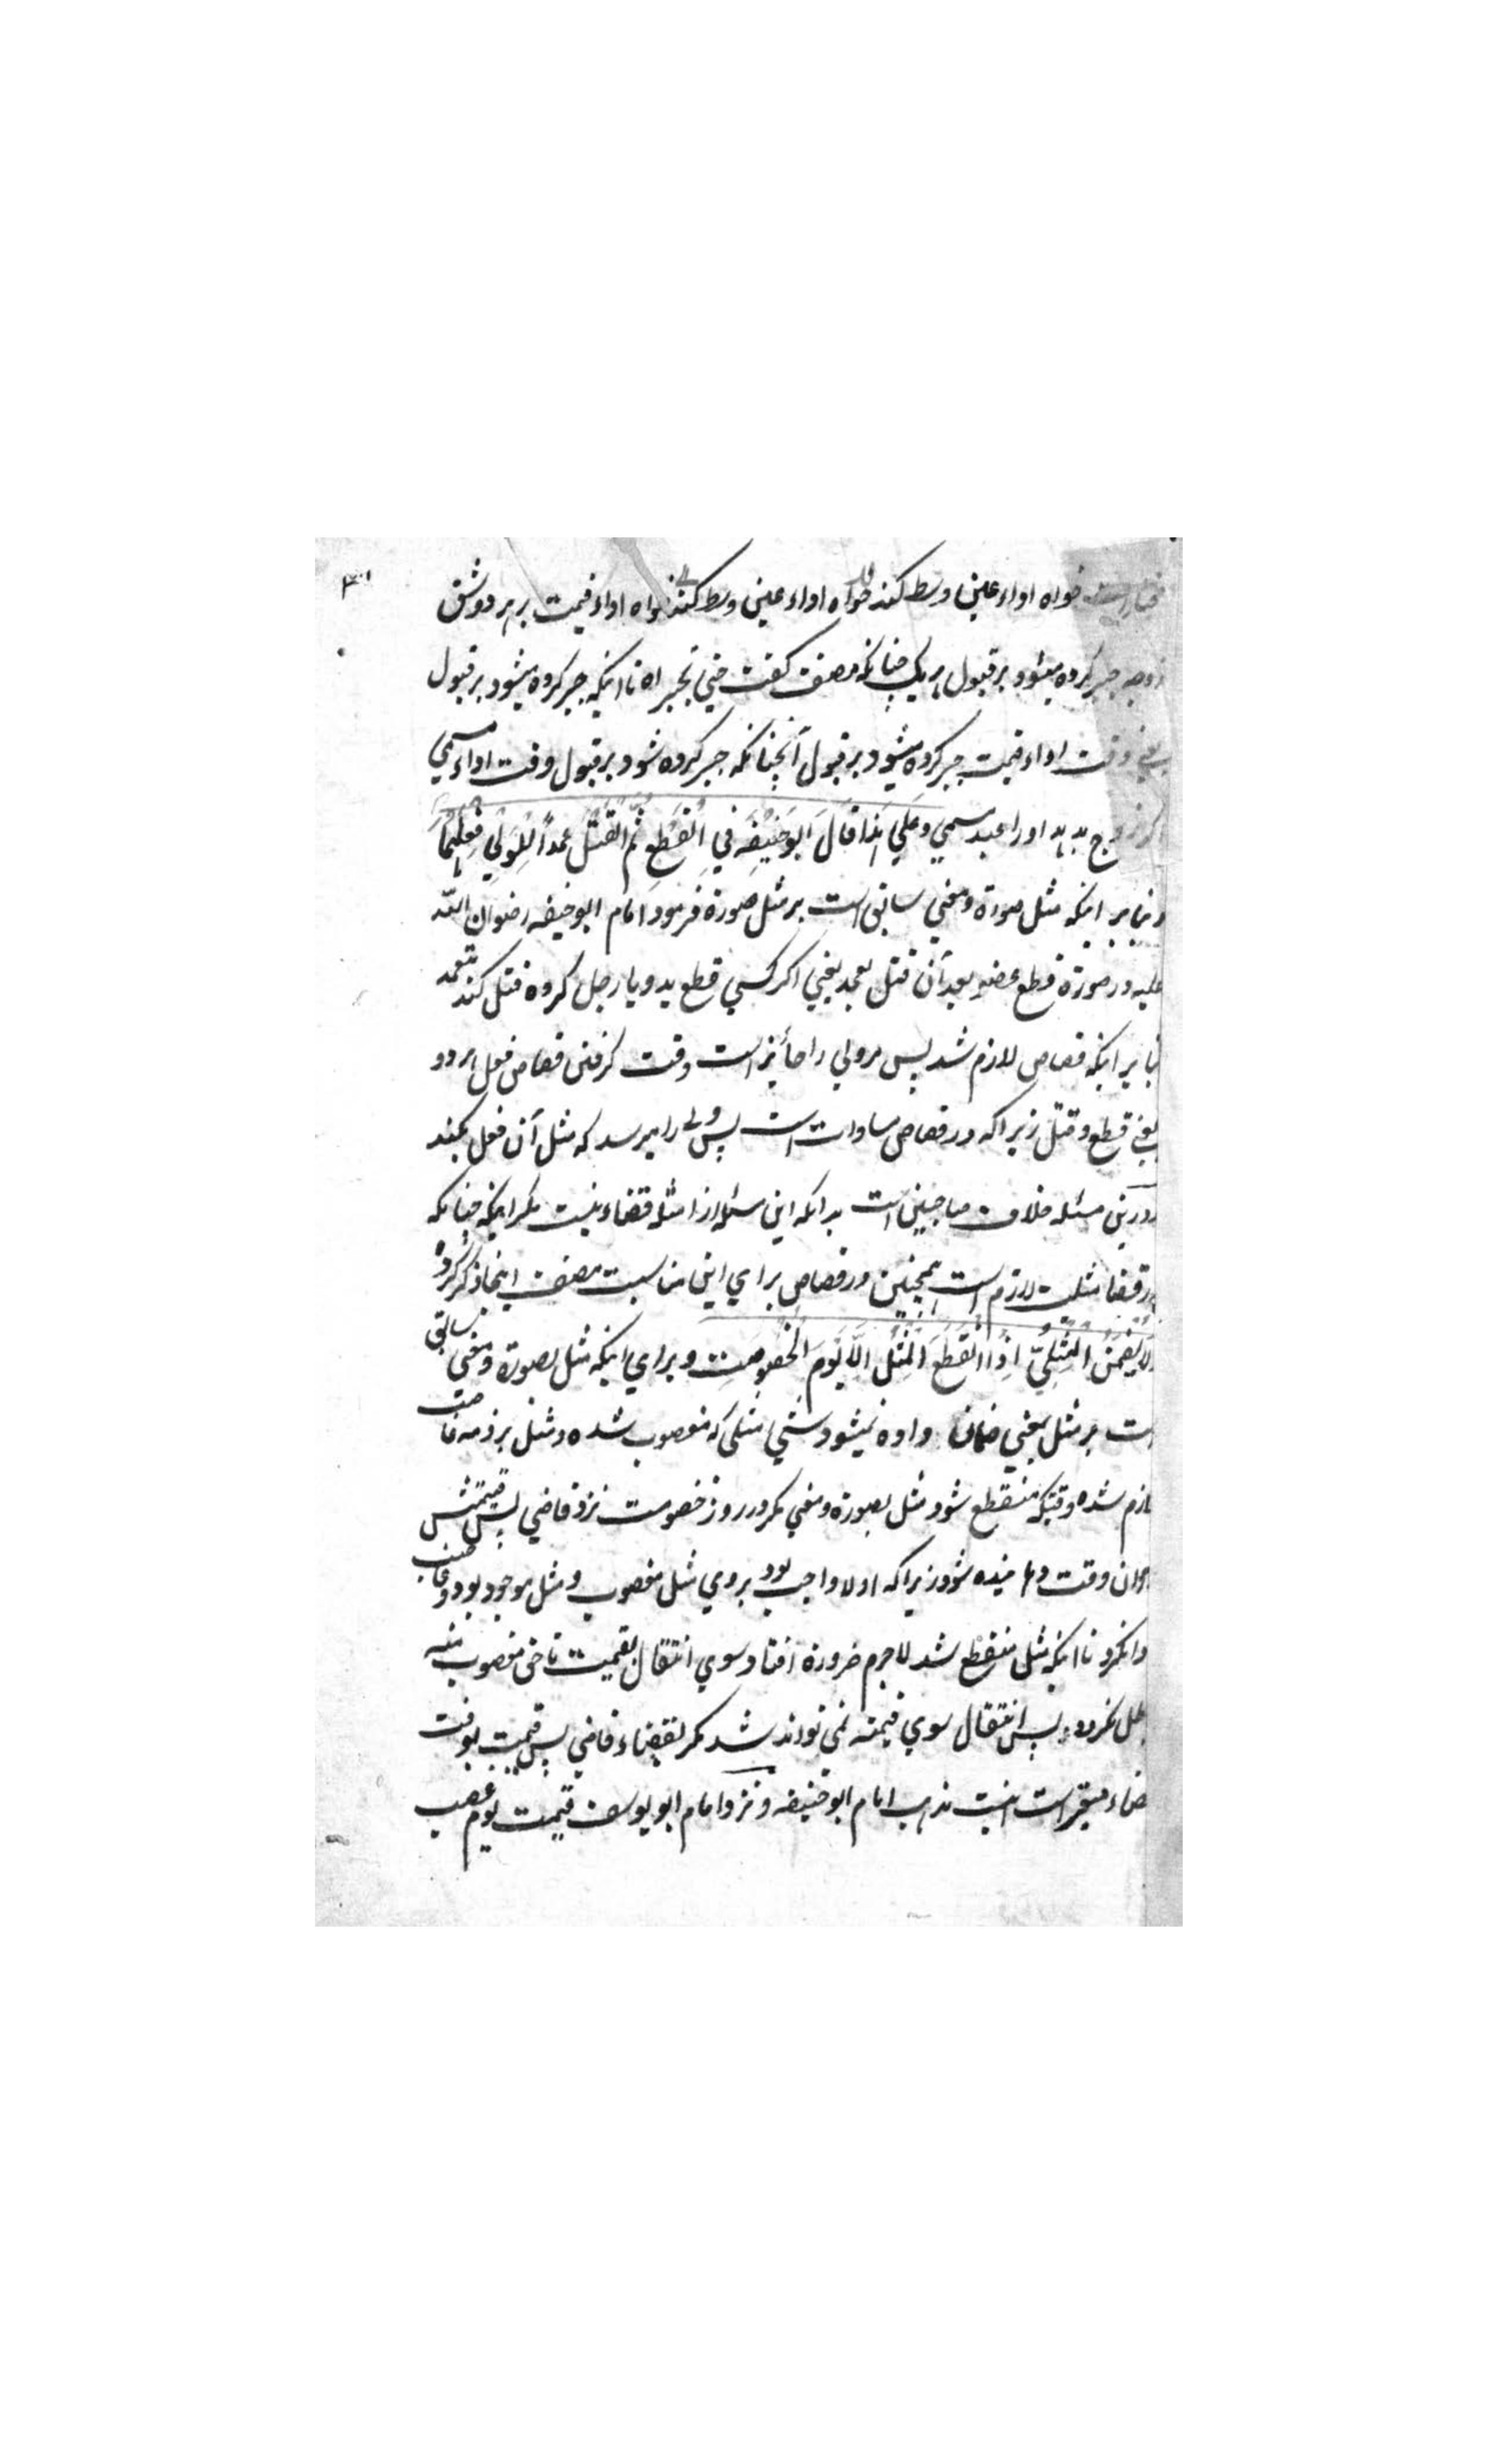 خواه اداء عین وسط کند خواه اداء عین وسط کند خواه اداء قیمت بر هر دو شق
زوجه جبر کرده میشود بر قبول هر یک چنانکه مصنف گفت حتی تجبر اه تا اینکه جبر کرده میشود بر قبول
یعنی وقت اداء قیمت جبر کرده میشود بر قبول آنچنانکه جبر کرده شود بر قبول وقت اداء مسمی
اگر زوج بدهد او را عبد مسمی وَعَلی هذا قَالَ اَبُو حَنِیفَه فِی القَطعِ ثُم القَتل عَمداً لِلوَلِی فِعلُهُمَا
و بنا بر اینکه مثل صورة و معنی سابق است بر مثل صورة فرمود امام ابو حنیفه رضوان الله
علیه در صورة قطع عضو بعد آن قتل بعمد یعنی اگر کسی قطع ید و یا رجل کرده قتل کند بتعمد
بنا بر اینکه قصاص لازم شد پس مر ولی را جائز است وقت گرفتن قصاص فعل هر دو
یعنی قطع و قتل زیرا که در قصاص مساوات است پس ولی را میرسد که مثل آن فعل بکند
و درین مسئله خلاف صاحبین است بدانکه این مسئله از امثله قضاء نیست مگر اینکه چنانکه
در قضا مثلیت لازم است همچنین در قصاص برای این مناسبت مصنف اینجا ذکر کرده
وَلَا یُضمَنُ المِثلِیُّ اِذَا انقَطَعَ المِثلُ اِلَّا یَومَ الخُصُومَتِ و برای اینکه مثل بصورة و معنی سابق
است بر مثل بمعنی ضمان داده نمیشود شئی مثلی که مغصوب شده و مثل بر ذمه غاصب
لازم شده وقتیکه منقطع شود مثل بصورة و معنی مگر در روز خصومت نزد قاضی پس قیمتش
همان وقت دهانیده شود زیرا که اولا واجب بود بروی مثل مغصوب و مثل موجود بود و غاصب
ادا نکرد تا اینکه مثل منقطع شد لاجرم ضرورة افتاد سوی انتقال بقیمت تا حق مغصوب منه
باطل نگردد پس انتقال سوی قیمته نمی تواند شد مگر بقضاء قاضی پس قیمت بوقت
قضاء معتبر است اینست مذهب امام ابو حنیفه و نزد امام ابو یوسف قیمت یوم غصب